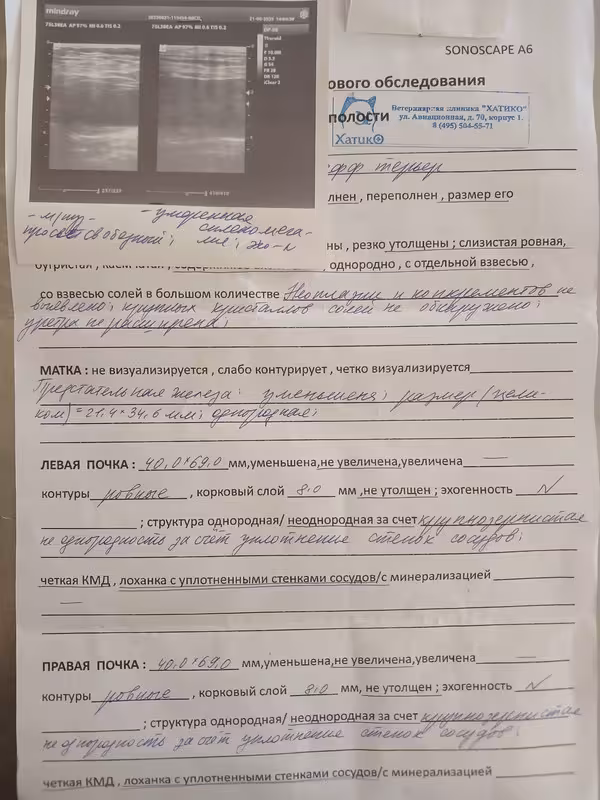 mindray
7SL38EA AP 97% MI 0.6 TIS 0.2
SONOSCAPE A6
ового обследования
полости
Ветеринарная клиника "ХАТИКО"
ул. Авиационная, д. 70, корпус 1.
8 (495) 504-55-71
Хатико
терьер
лнен , переполнен , размер его
- умеренная
спленомега-
просвет свободный; лия; эхо-N
ны , резко утолщены ; слизистая ровная,
однородно , с отдельной взвесью ,
со взвесью солей в большом количестве Неоплазии и конкрементов не
выявлено; крупных кристаллов солей не обнаружено;
уретра не расширена;
МАТКА : не визуализируется , слабо контурирует , четко визуализируется
Предстательная железа: уменьшена; размер (цели-
ком) = 21,4 * 34,6 мм; однородная;
ЛЕВАЯ ПОЧКА : 40,0*69,0 мм,уменьшена,не увеличена,увеличена —
контуры ровные , корковый слой 8,0 мм ,не утолщен ; эхогенность N
; структура однородная/ неоднородная за счет крупнозернистая
неоднородность за счёт уплотнение стенок сосудов;
четкая КМД , лоханка с уплотненными стенками сосудов/с минерализацией
—
ПРАВАЯ ПОЧКА : 40,0*69,0 мм,уменьшена,не увеличена,увеличена —
контуры ровные , корковый слой 8,0 мм, не утолщен ; эхогенность N
; структура однородная/ неоднородная за счет крупнозернистая
неоднородность за счёт уплотнение стенок сосудов;
четкая КМД , лоханка с уплотненными стенками сосудов/с минерализацией